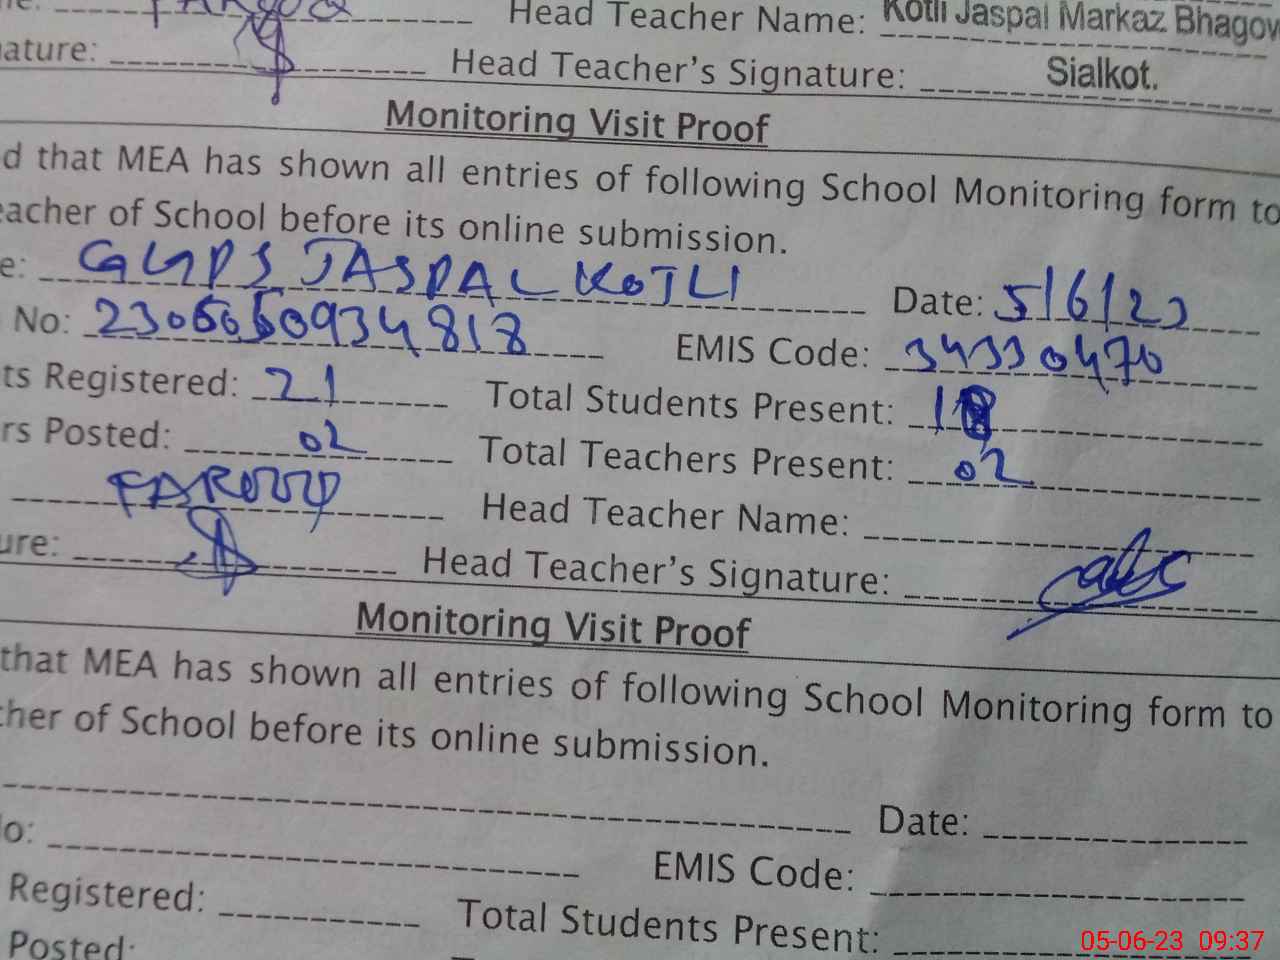 Head Teacher Name: Kotli Jaspal Markaz Bhagow
ature: Head Teacher's Signature: Sialkot.
Monitoring Visit Proof
d that MEA has shown all entries of following School Monitoring form to
eacher of School before its online submission.
e: GGPS JASPAL KOTLI Date: 5/6/23
No: EMIS Code: 34330470
ts Registered: 21 Total Students Present:
rs Posted: 02 Total Teachers Present: 02
FAROOQ Head Teacher Name:
ure: Head Teacher's Signature:
Monitoring Visit Proof
that MEA has shown all entries of following School Monitoring form to
cher of School before its online submission.
Date:
lo: EMIS Code:
Registered: Total Students Present:
Posted:
05-06-23 09:37